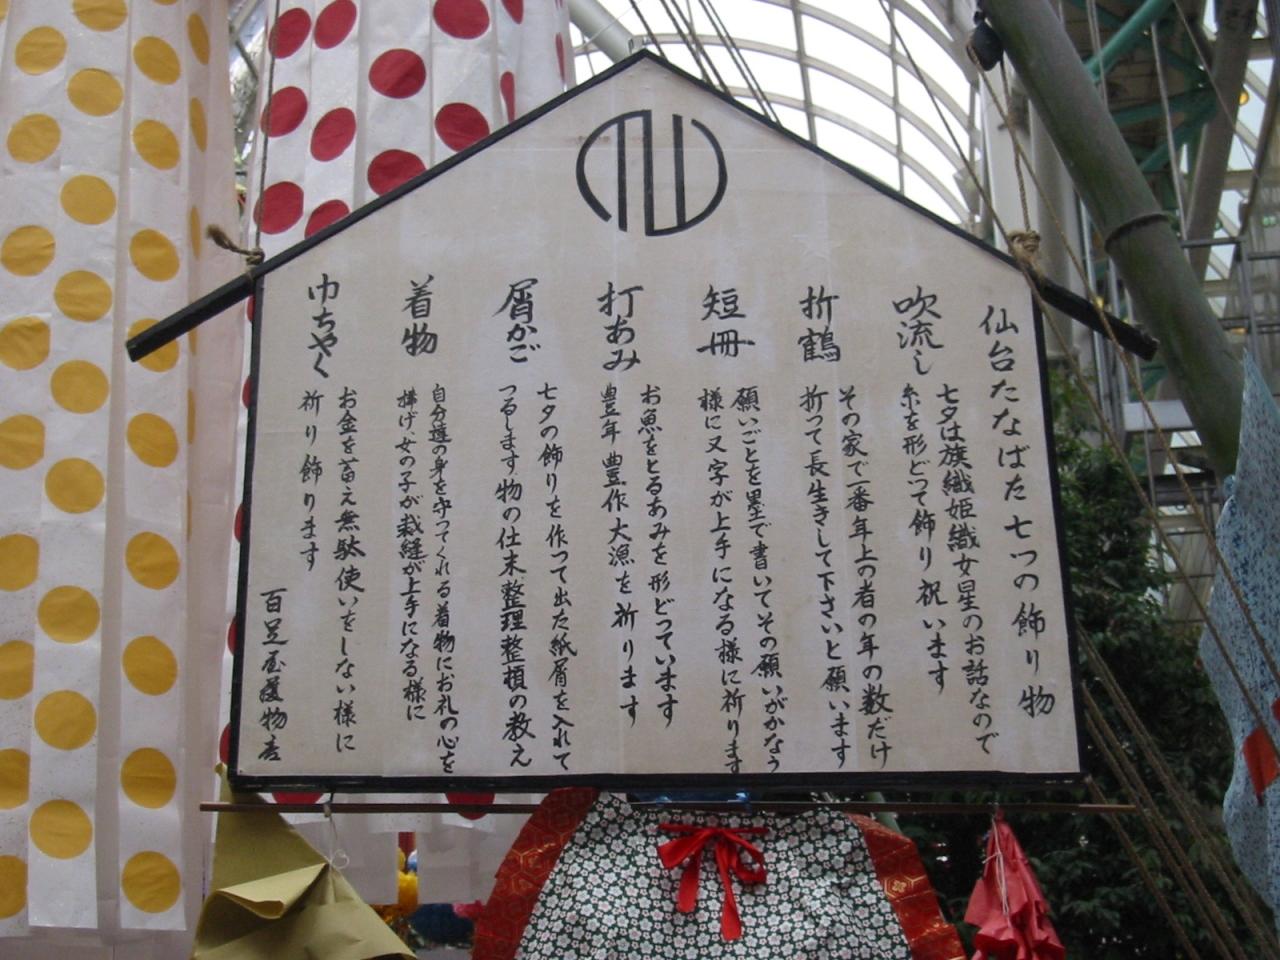 仙台たなばた七つの飾り物
吹流し
七夕は族織姫織女星のお話なので
糸を形どって飾り祝います
折鶴
その家で一番年上の者の年の数だけ
折って長生きして下さいと願います
短冊
願いごとを墨で書いてその願いがかなう
様に又字が上手になる様に祈ります
打あみ
お魚をとるあみを形どっています
豊年豊作大漁を祈ります
屑かご
七夕の飾りを作って出た紙屑を入れて
つるします物の仕末整理整頓の教え
着物
自分達の身を守ってくれる着物にお礼の心を
捧げ女の子が裁縫が上手になる様に
巾ちやく
お金を蓄え無駄使いをしない様に
祈り飾ります
百足屋